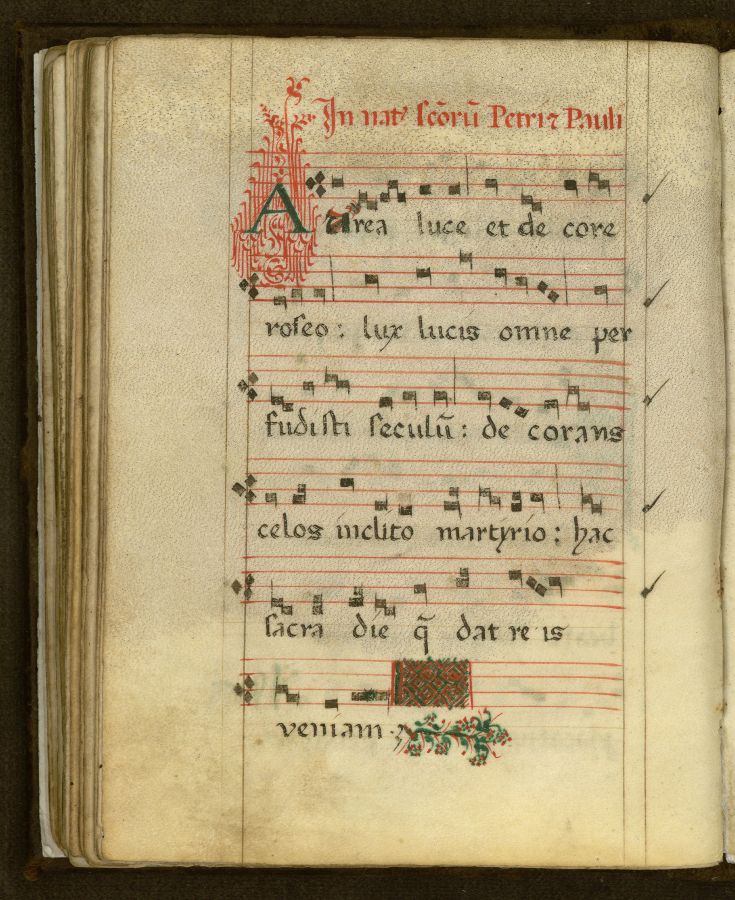 In nat҃ scōrū Petri ⁊ Pauli
Aurea luce et de core
roseo: lux lucis omne per
fudisti seculū: de corans
celos inclito martyrio: hac
sacra die q̄ dat re is
veniam.